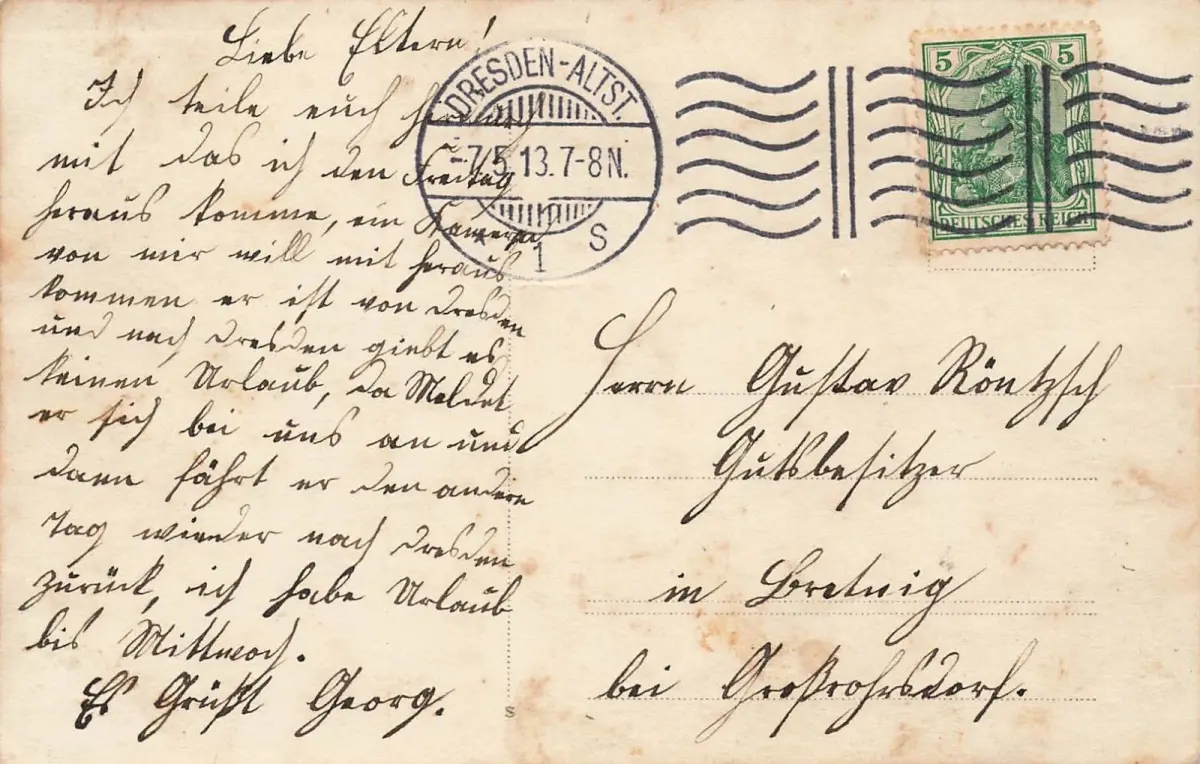 Liebe Eltern!
Ich teile euch hier
mit das ich den Freitag
heraus komme, ein Kamerad
von mir will mit heraus
kommen er ist von Dresden
und nach Dresden giebt es
keinen Urlaub, da Meldet
er sich bei uns an und
dann fährt er den andern
Tag wieder nach Dresden
zurück, ich habe Urlaub
bis Mittwoch.
Es Grüßt Georg.
DRESDEN-ALTST.
-7.5.13.7-8N.
* 1 s
5 5
DEUTSCHES REICH
Herrn Gustav Röntzsch
Gutsbesitzer
in Bretnig
bei Großröhrsdorf.
s